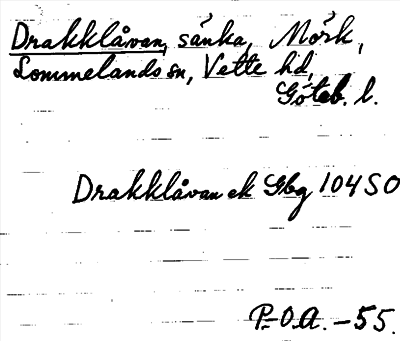 Drakklåvan, sänka, Mörk,
Lommelands sn, Vette hd,
Göteb. l.
Drakklåvan ek Gbg 104 SO
P.-O.A. -55.